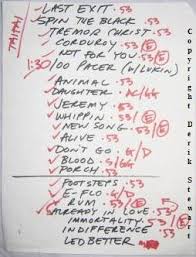 TAIPAI
LAST EXIT · 53
SPIN THE BLACK · 53
TREMOR CHRIST · 53
CORDUROY · 53
NOT FOR YOU · 53/E
1:30/ 100 PACER (W/LUKIN)
ANIMAL · 53
DAUGHTER · AC/GG
JEREMY · 53
WHIPPIN · 53/E
NEW SONG · 53/E
ALIVE · 53
DON'T GO · G/D
BLOOD · S/GG
PORCH · 53
FOOTSTEPS · 53
E-FLO · G/D
RUM · 53/E
ALREADY IN LOVE · 53
IMMORTALITY · 53/E
INDIFFERENCE · 53
LEDBETTER
Copyright Dirk Stewart